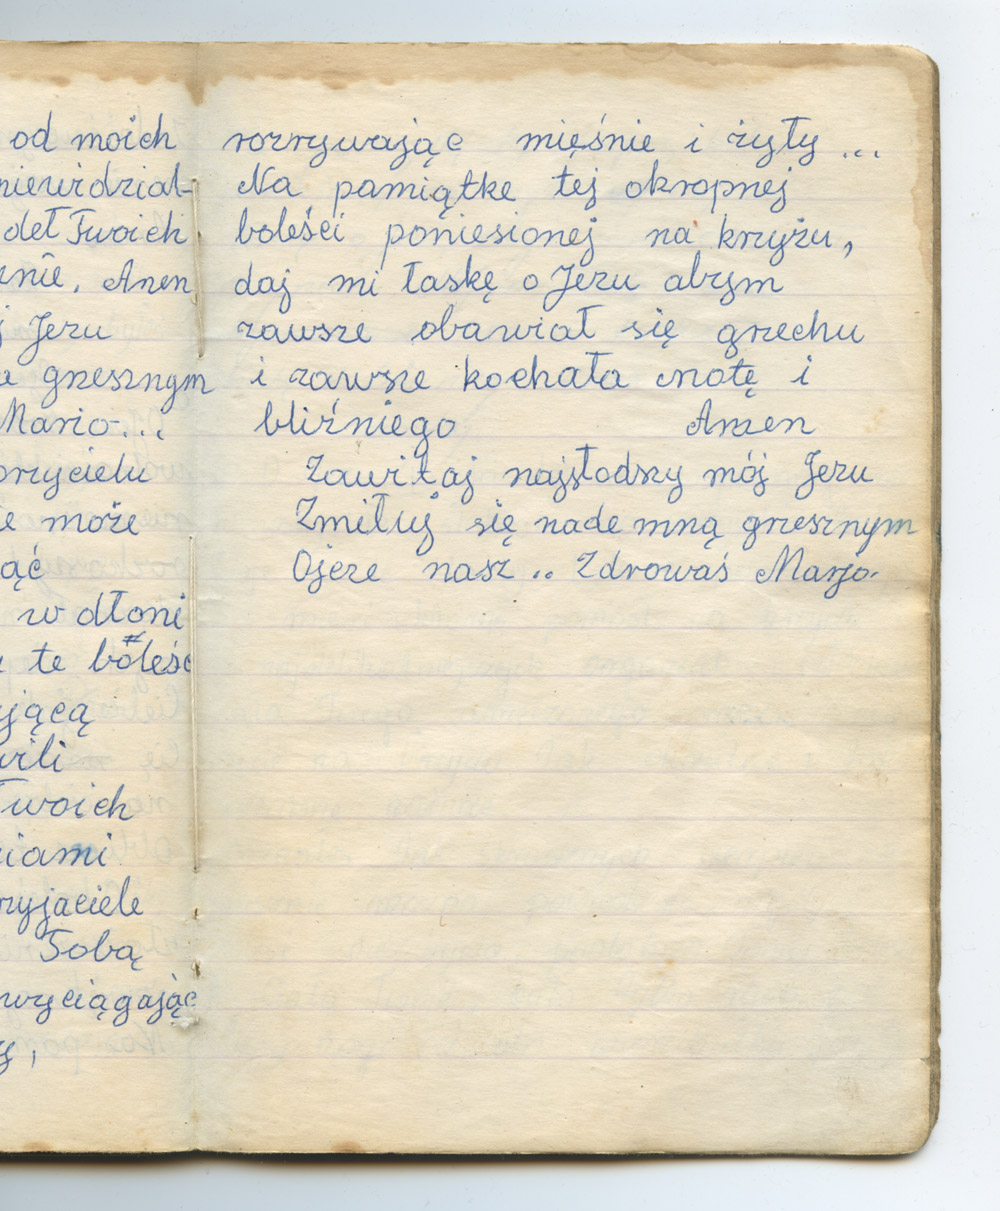 od moich
niewidzial-
deł Twoich
Amen
Jezu
grzesznym
Mario...
może
w dłoni
te boleść
Twoich
Tobą
wyciągając
rozrywając mięśnie i żyły...
Na pamiątke tej okropnej
boleści poniesionej na krzyżu,
daj mi łaskę o Jezu abym
zawsze obawiał się grzechu
i zawsze kochała cnotę i
bliźniego Amen
Zawitaj najsłodszy mój Jezu
Zmiłuj się nade mną grzesznym
Ojcze nasz.. Zdrowaś Marjo.